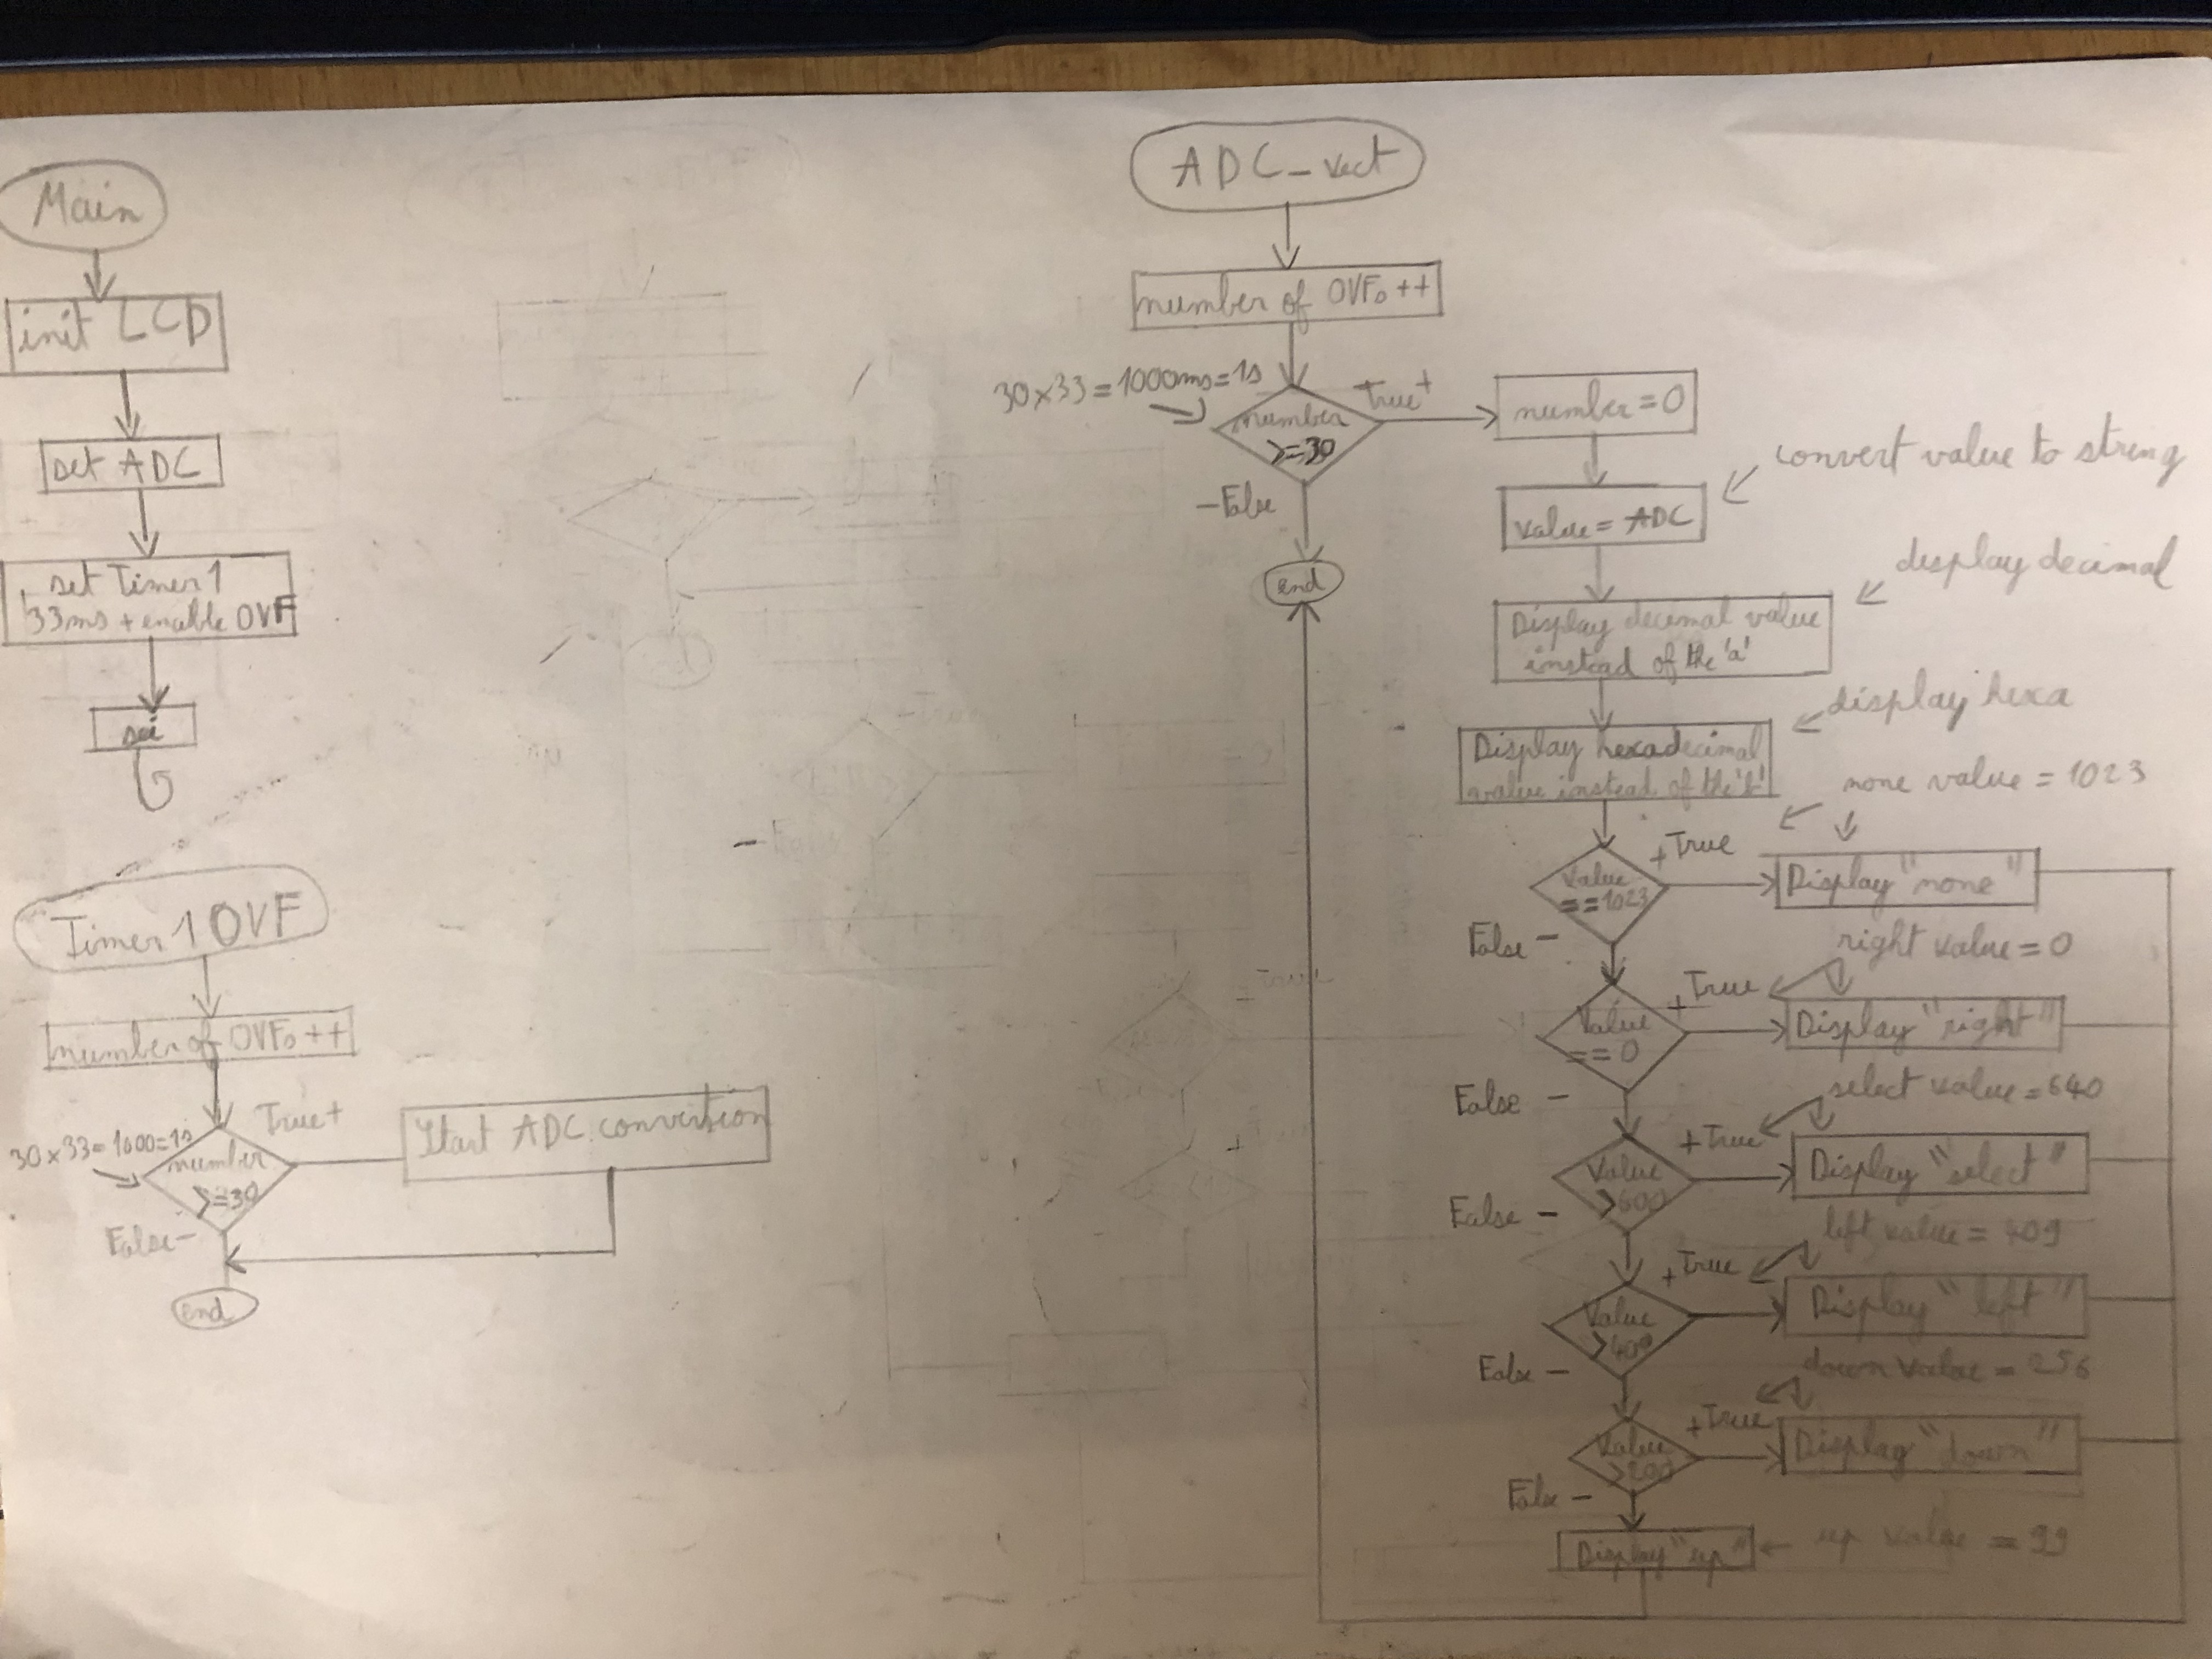 Main
init LCD
set ADC
set Timer 1
33ms + enable OVF
sei
Timer 1 OVF
number of OVFs ++
30x33=1000=1s
True +
number
>=30
False -
Start ADC convertion
end
ADC_vect
number of OVFs ++
30x33=1000ms=1s
True +
number
>=30
- False
end
number=0
convert value to string
value = ADC
display decimal
Display decimal value
instead of the 'a'
display hexa
Display hexadecimal
value instead of the 'b'
none value = 1023
+ True
Value
==1023
Display "none"
False -
right value = 0
+ True
Value
== 0
Display "right"
False -
select value = 640
+ True
Value
>600
Display "select"
False -
left value = 409
+ True
Value
>400
Display "left"
False -
down value = 256
+ True
Value
>200
Display "down"
False -
Display "up"
up value = 99